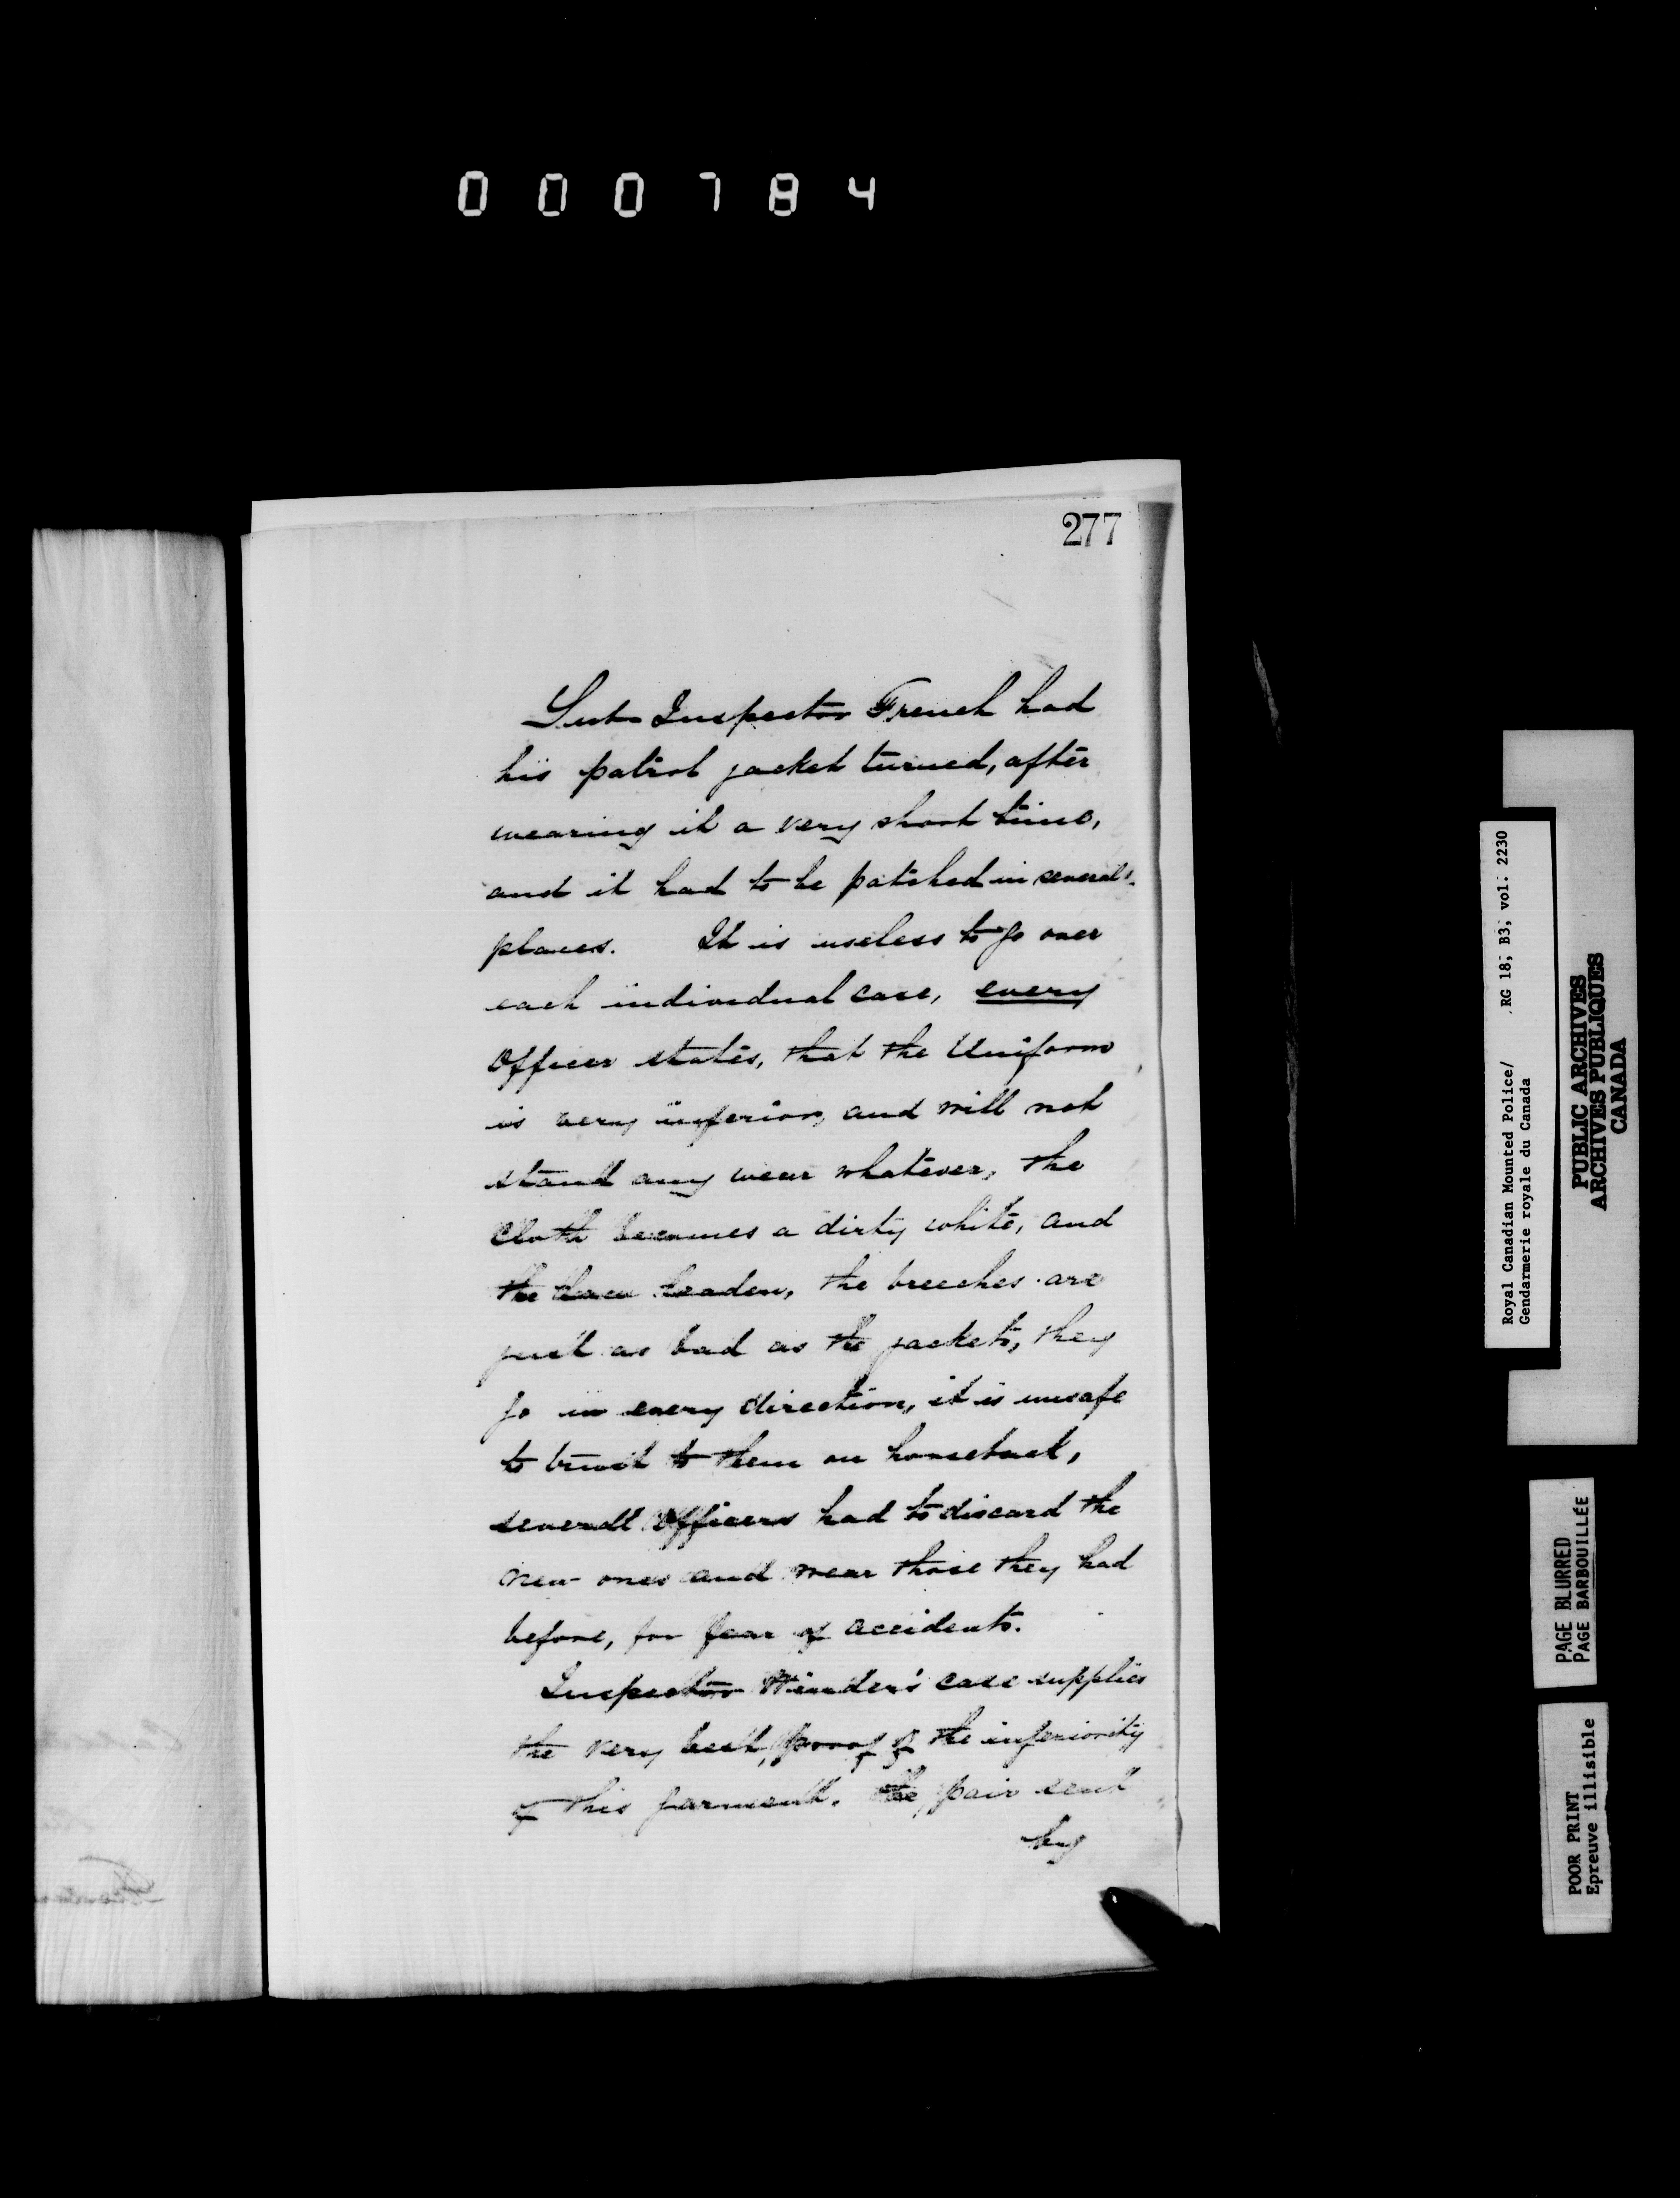 0 0 0 7 8 4
277
Sub Inspector French had
his patrol jacket turned, after
wearing it a very short time,
and it had to be patched in several
places. It is useless to go over
each individual case, every
Officer states, that the Uniform
is very inferior, and will not
stand any wear whatever, the
cloth becomes a dirty white, and
the leaden, the breeches are
just as bad as the jackets, they
go in every direction, it is unsafe
to trust to them on horseback,
several Officers had to discard the
new ones and wear those they had
before, for fear of accidents.
Inspector Winder's case supplies
the very best proof of the inferiority
of this garment. the pair sent
by
Royal Canadian Mounted Police/ RG 18; B3; vol: 2230
Gendarmerie royale du Canada
PUBLIC ARCHIVES
ARCHIVES PUBLIQUES
CANADA
PAGE BLURRED
PAGE BARBOUILLÉE
POOR PRINT
Epreuve illisible